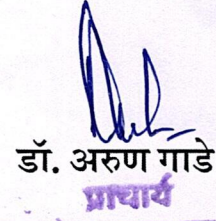 डॉ. अरुण गाडे
प्राचार्य